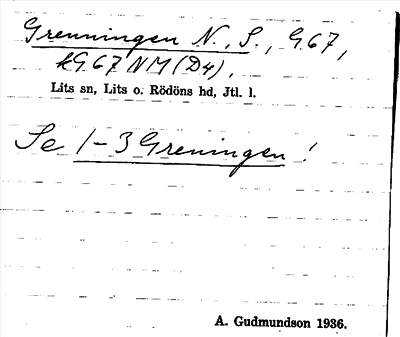 Grenningen N., S., G.67,
kG.67 NM (D4),
Lits sn, Lits o. Rödöns hd, Jtl. l.
Se 1-3 Greningen !
A. Gudmundson 1936.